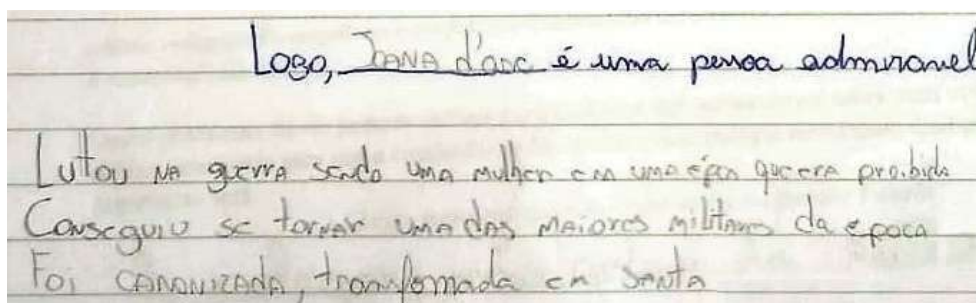 Logo, Joana d'arc é uma pessoa admiravel
Lutou na guerra sendo uma mulher em uma época que era proibida
Conseguiu se tornar uma das maiores militares da epoca
Foi cananizada, transfomada em santa